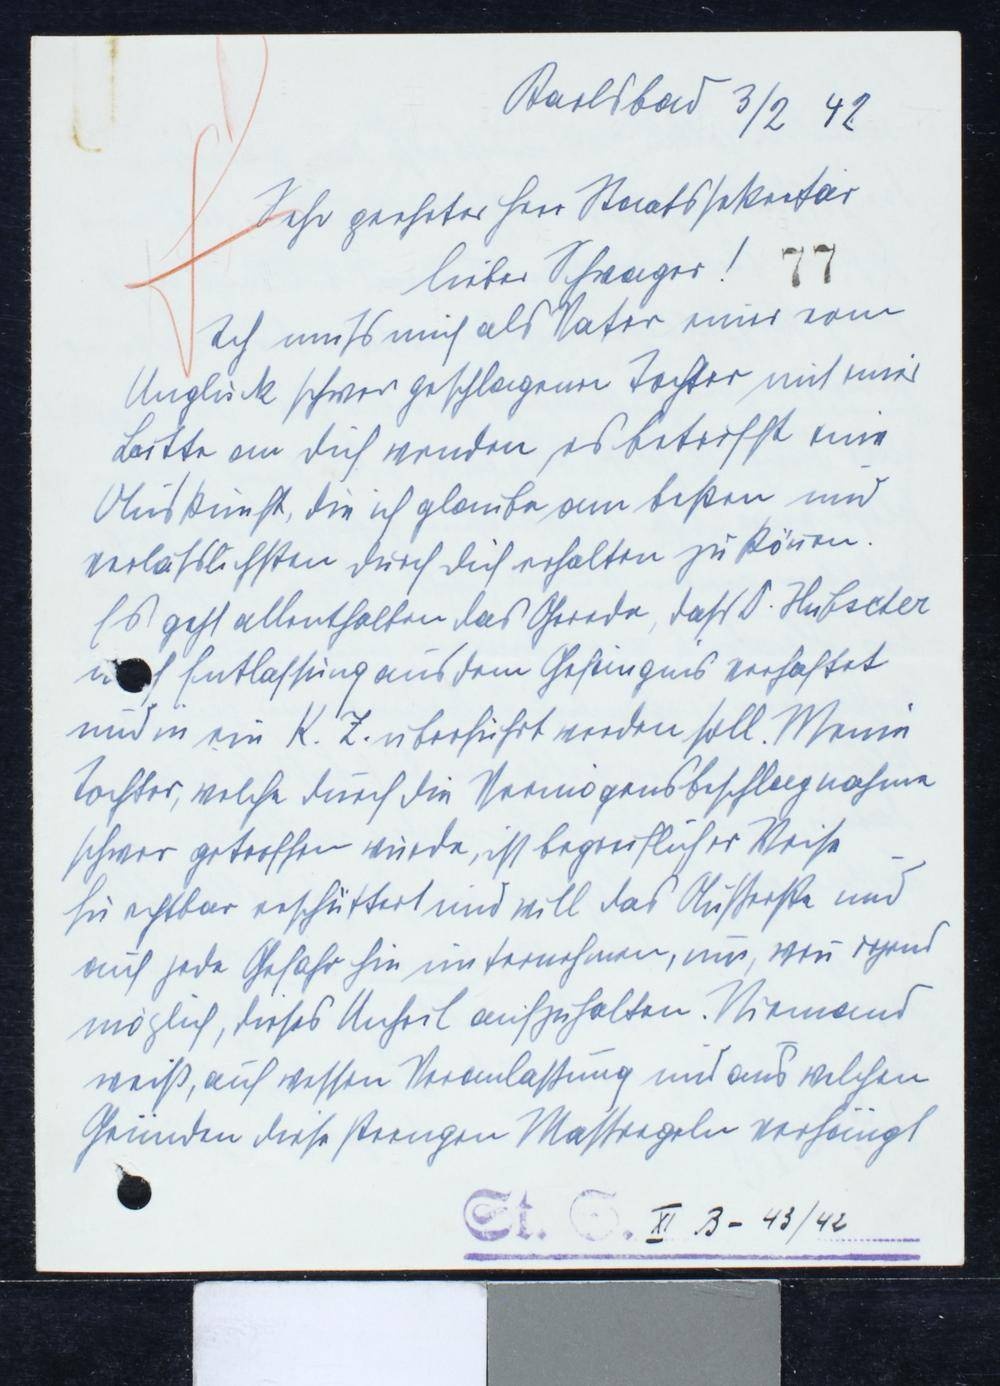 Karlsbad 3/2 42
Sehr geehrter Herr Staatssekretär
lieber Schwager!
77
Ich muss mich als Vater einer vom
Unglück schwer geschlagenen Tochter mit einer
Bitte an Dich wenden, es betrifft eine
Auskunft, die ich glaube am besten und
verlässlichsten durch Dich erhalten zu könen.
Es geht allenthalben das Gerede, dass D. Hubscter
nach Entlassung aus dem Gefängnis verhaftet
und in ein K. Z. überführt werden soll. Meine
Tochter, welche durch die Vermögensbeschlagnahme
schwer getroffen wurde, ist begreiflicher Weise
furchtbar erschüttert und will das Äußerste und
auf jede Gefahr hin unternehmen, um, wen irgend
möglich, dieses Unheil aufzuhalten. Niemand
weiß, auf wessen Veranlassung und aus welchen
Gründen diese strengen Massregeln verhängt
St. S. XI B - 43/42